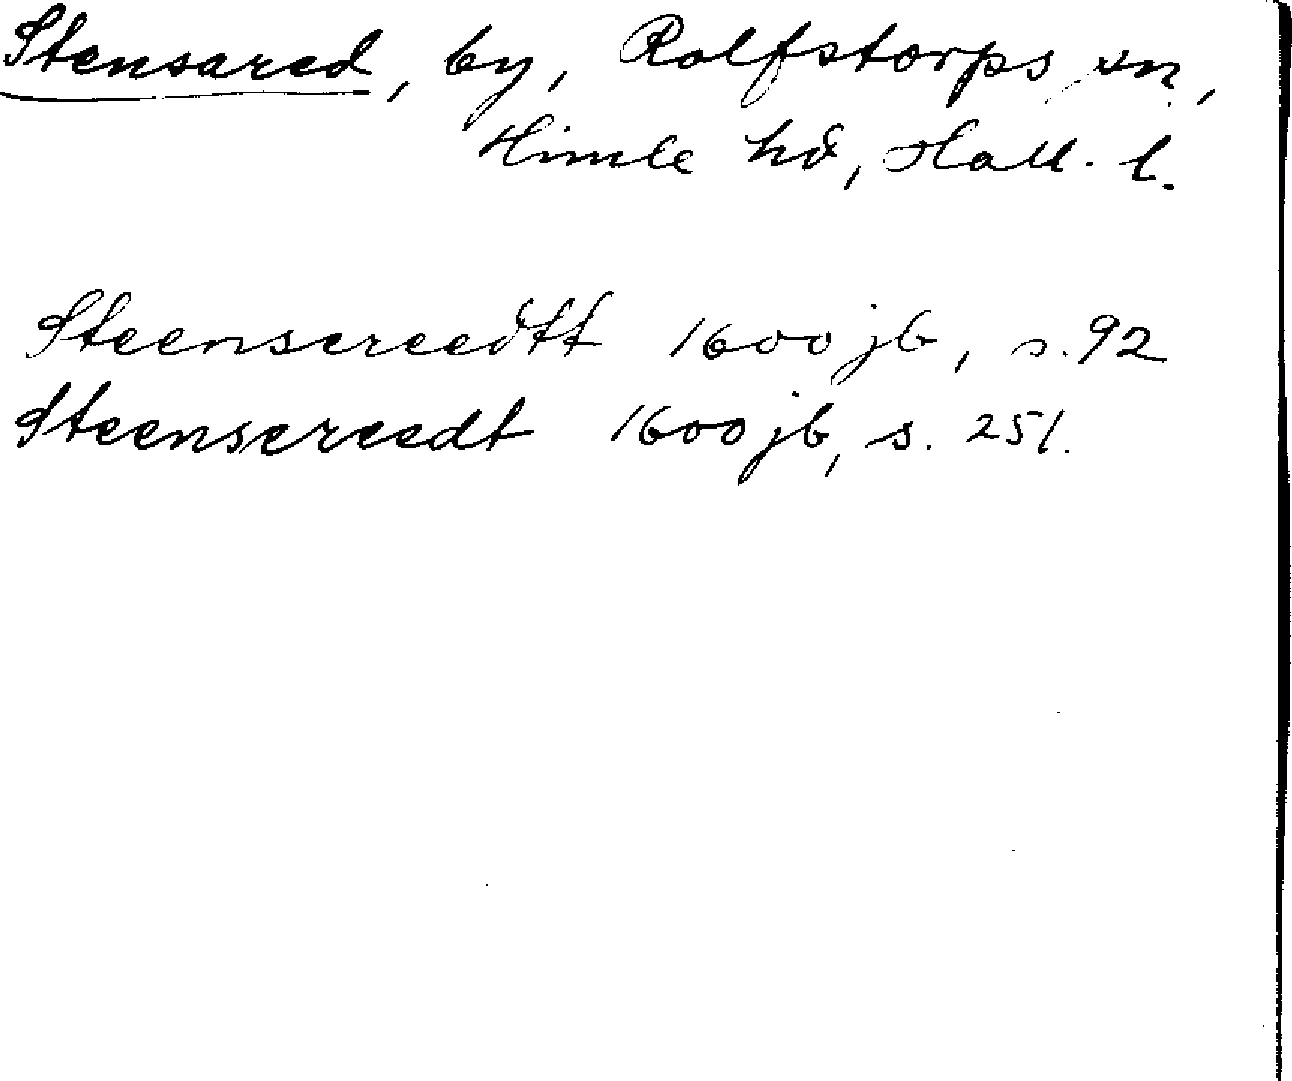 Stensared, by, Rolfstorps sn,
Himle hd, Hall. l.
Steensereedtt 1600 jb, s. 92
Steensereedt 1600 jb, s. 251.